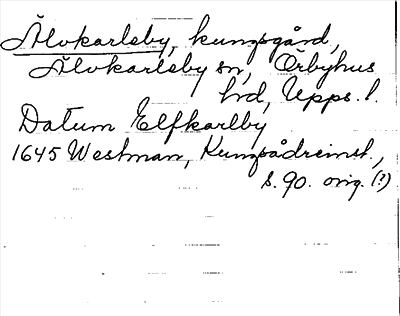 Älvkarleby, kungsgård,
Älvkarleby sn, Örbyhus
hd, Upps. l.
Datum Elfkarlby
1645 Westman, Kungsådreinst.,
s. 90. orig. (?)